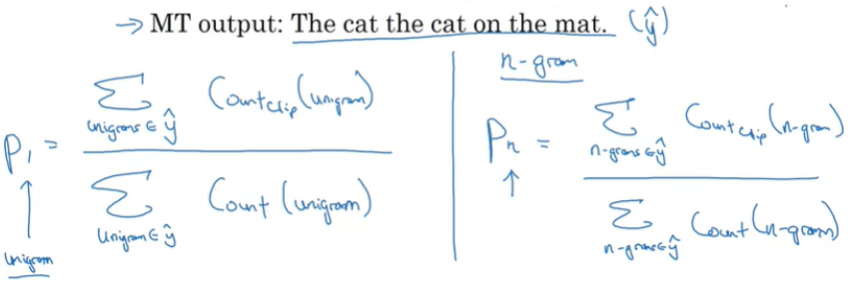 → MT output: The cat the cat on the mat. (ŷ)
p₁ = ∑ unigrams ∈ ŷ Countclip (unigram)
∑ unigram ∈ ŷ Count (unigram)
↑
unigram
n-gram
pₙ = ∑ n-grams ∈ ŷ Countclip (n-gram)
∑ n-grams ∈ ŷ Count (n-gram)
↑